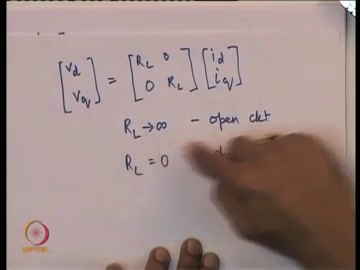 [v_d v_q] = [R_L 0 0 R_L] [i_d i_q]
R_L → ∞ - open ckt
R_L = 0